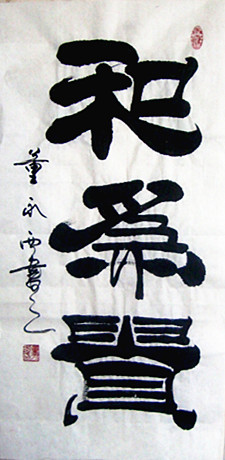 和為貴
董永西書之